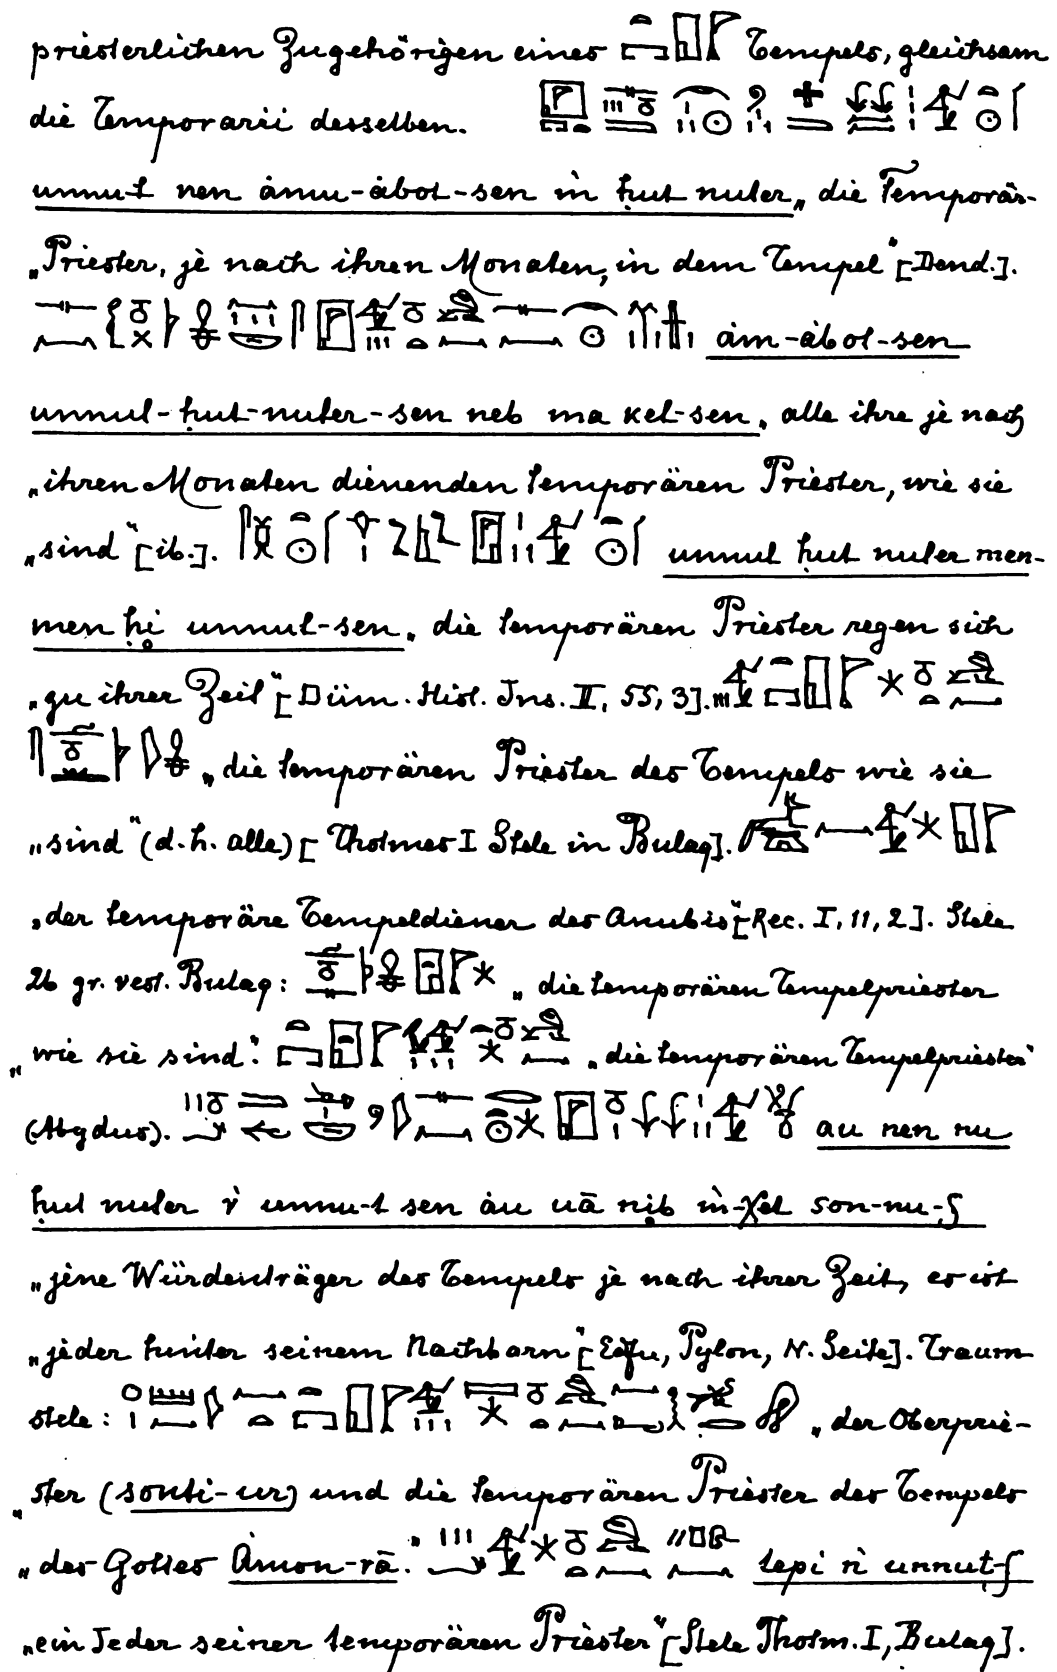 priesterlichen Zugehörigen eines Tempels, gleichsam
die Temporarii desselben.
unnu-t nen àmu-àbot-sen m̀ ḥut nuter„ die Temporär-
„Priester, je nach ihren Monaten, in dem Tempel“ [Dend.].
àm-àbot-sen
unnut-ḥut-nuter-sen neb ma ket-sen„ alle ihre je nach
„ihren Monaten dienenden temporären Priester, wie sie
„sind“ [ib.]. unnut ḥut nuter men-
men ḥi unnut-sen„ die temporären Priester regen sich
„zu ihrer Zeit“ [Düm. Hist. Ins. II, 55, 3].
„die temporären Priester des Tempels wie sie
„sind“ (d.h. alle) [Thotmes I Stele in Bulaq].
„der temporäre Tempeldiener des Anubis“ [Rec. I, 11, 2]. Stele
26 gr. vest. Bulaq: „die temporären Tempelpriester
„wie sie sind“: „die temporären Tempelpriester“
(Abydus). au nen nu
ḥut nuter r̀ unnu-t sen àu uā nib m̀-χet son-nu-f
„jene Würdenträger des Tempels je nach ihrer Zeit, es ist
„jeder hinter seinem Nachbarn“ [Edfu, Pylon, N. Seite]. Traum
stele: „der Oberprie-
„ster (sonti-ur) und die temporären Priester des Tempels
„des Gottes Àmon-rā.“ tepi ǹ unnut-f
„ein Jeder seiner temporären Priester“ [Stele Thotm. I, Bulaq].